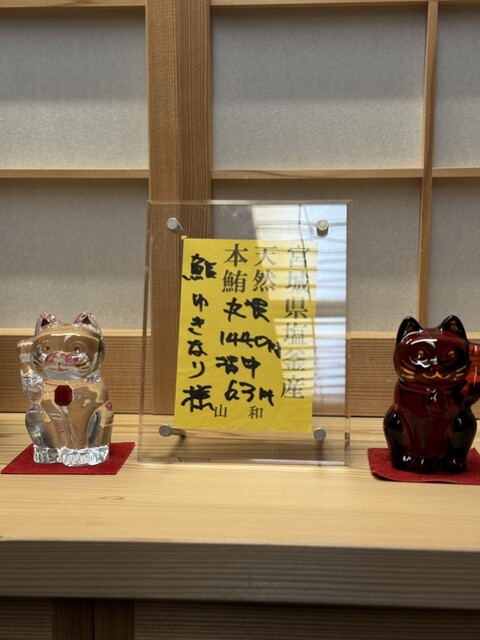 宮城県塩釜産
天然
本鮪
144.0K
背中
63K
鮨ゆきなり様
山和